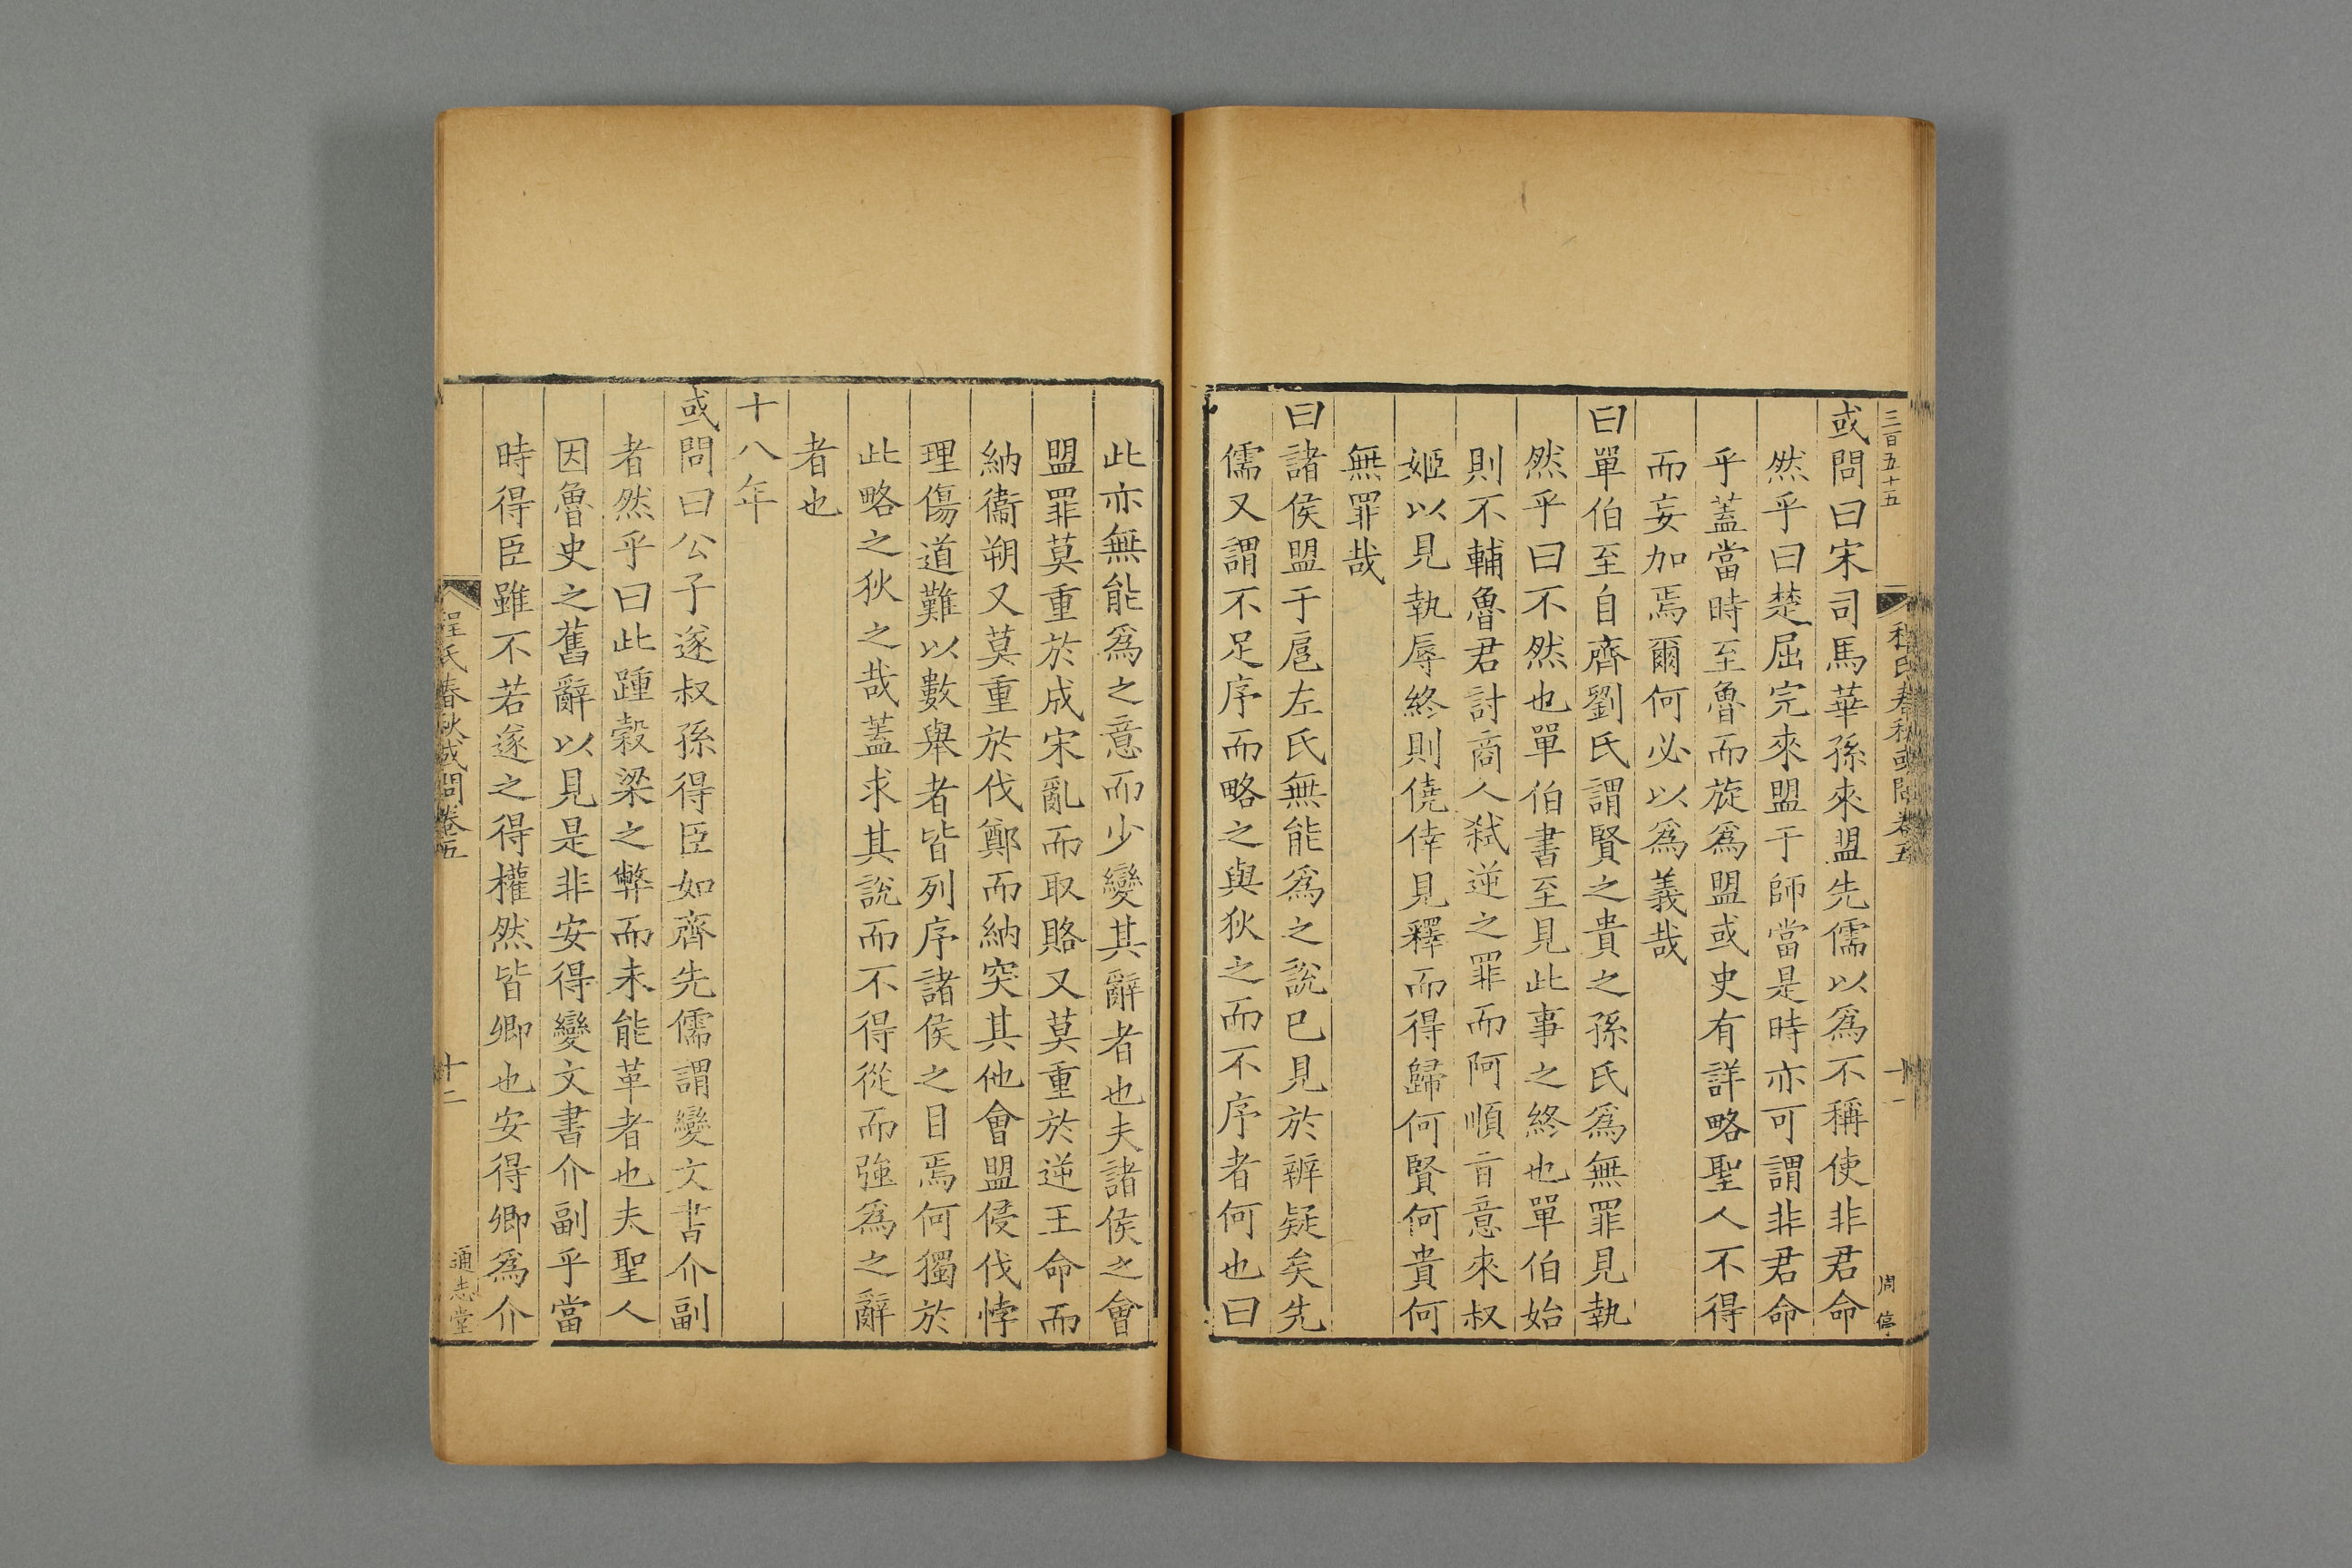 三百五十五
程氏春秋或問卷五
周停
或問曰宋司馬華孫來盟先儒以爲不稱使非君命
然乎曰楚屈完來盟于師當是時亦可謂非君命
乎蓋當時至魯而旋爲盟或史有詳略聖人不得
而妄加焉爾何必以爲義哉
曰單伯至自齊劉氏謂賢之貴之孫氏爲無罪見執
然乎曰不然也單伯書至見此事之終也單伯始
則不輔魯君討商人弑逆之罪而阿順盲意來叔
姬以見執辱終則僥倖見釋而得歸何賢何貴何
無罪哉
曰諸侯盟于扈左氏無能爲之說已見於辨疑矣先
儒又謂不足序而略之與狄之而不序者何也曰
此亦無能爲之意而少變其辭者也夫諸侯之會
盟罪莫重於成宋亂而取賂又莫重於逆王命而
納衞朔又莫重於伐鄭而納突其他會盟侵伐悖
理傷道難以數舉者皆列序諸侯之目焉何獨於
此略之狄之哉蓋求其說而不得從而強爲之辭
者也
十八年
或問曰公子遂叔孫得臣如齊先儒謂變文書介副
者然乎曰此踵榖梁之弊而未能革者也夫聖人
因魯史之舊辭以見是非安得變文書介副乎當
時得臣雖不若遂之得權然皆卿也安得卿爲介
程氏春秋或問卷五
十二
通志堂